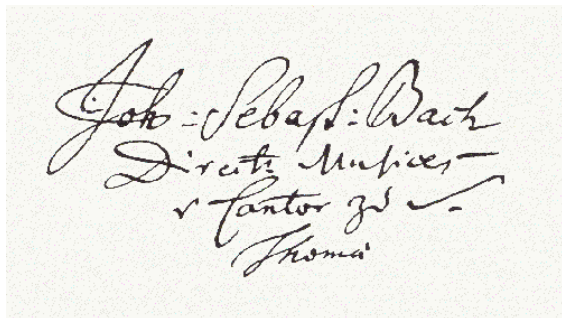 Joh: Sebast: Bach
Direct: Musices
v Cantor zu S.
Thomæ